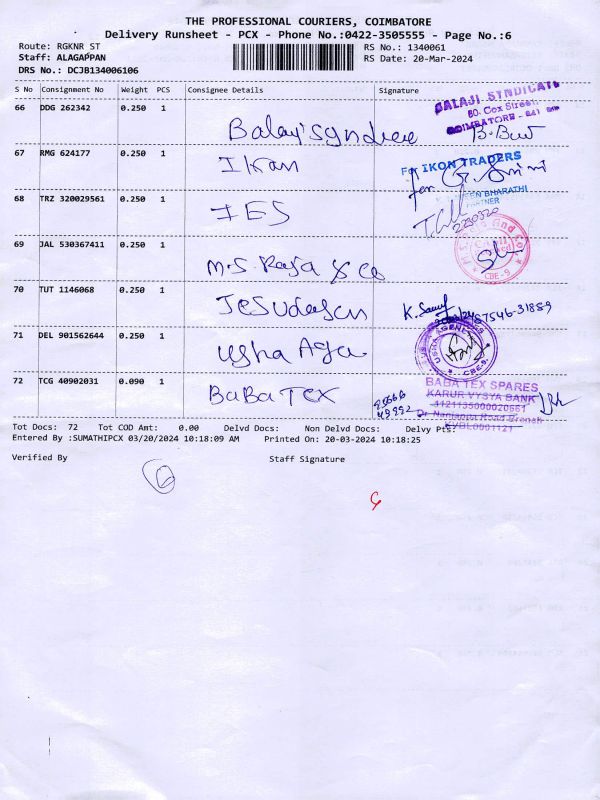 THE PROFESSIONAL COURIERS, COIMBATORE
Delivery Runsheet - PCX - Phone No.:0422-3505555 - Page No.:6
Route: RGKNR ST
RS No.: 1340061
Staff: ALAGAPPAN
RS Date: 20-Mar-2024
DRS No.: DCJB134006106
S No Consignment No Weight PCS Consignee Details Signature
66 DDG 262342 0.250 1
BALAJI SYNDICATE
80. Cox Street
COIMBATORE - 641
67 RMG 624177 0.250 1 Ikan
For IKON TRADERS
BHARATHI
PARTNER
68 TRZ 320029561 0.250 1 IES
69 JAL 530367411 0.250 1 M.S. Raja & Co
CBE-9
70 TUT 1146068 0.250 1 Jesudasan
71 DEL 901562644 0.250 1 Usha Age
USHA AGENCIES
CBE-9.
72 TCG 40902031 0.090 1 BaBa TEX
BABA TEX SPARES
KARUR VYSYA BANK
1121135000020661
Dr. Nanjappa Road Branch
KVBL0001121
Tot Docs: 72 Tot COD Amt: 0.00 Delvd Docs: Non Delvd Docs: Delvy Pts:
Entered By :SUMATHIPCX 03/20/2024 10:18:09 AM Printed On: 20-03-2024 10:18:25
Verified By Staff Signature